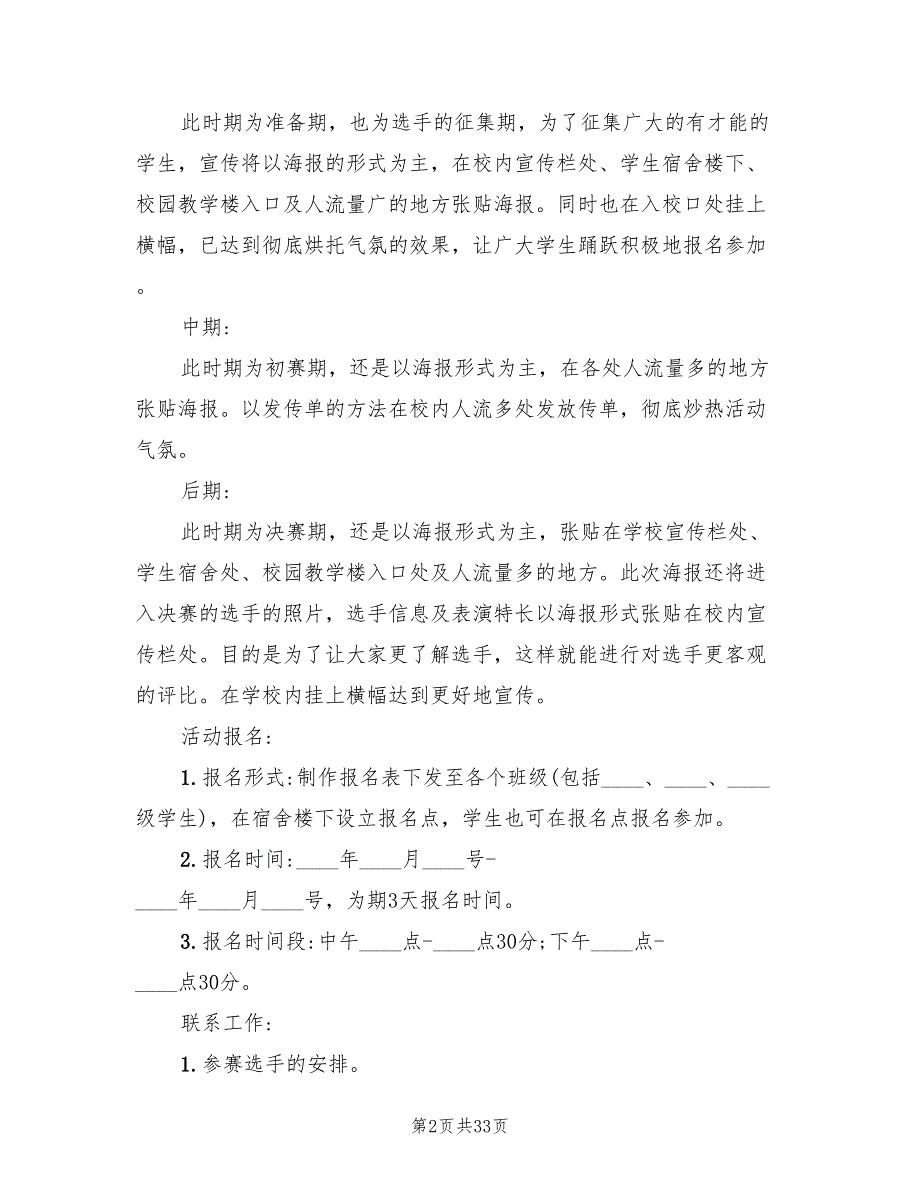 此时期为准备期，也为选手的征集期，为了征集广大的有才能的
学生，宣传将以海报的形式为主，在校内宣传栏处、学生宿舍楼下、
校园教学楼入口及人流量广的地方张贴海报。同时也在入校口处挂上
横幅，已达到彻底烘托气氛的效果，让广大学生踊跃积极地报名参加
。
中期:
此时期为初赛期，还是以海报形式为主，在各处人流量多的地方
张贴海报。以发传单的方法在校内人流多处发放传单，彻底炒热活动
气氛。
后期:
此时期为决赛期，还是以海报形式为主，张贴在学校宣传栏处、
学生宿舍处、校园教学楼入口处及人流量多的地方。此次海报还将进
入决赛的选手的照片，选手信息及表演特长以海报形式张贴在校内宣
传栏处。目的是为了让大家更了解选手，这样就能进行对选手更客观
的评比。在学校内挂上横幅达到更好地宣传。
活动报名:
1.报名形式:制作报名表下发至各个班级(包括____、____、____
级学生)，在宿舍楼下设立报名点，学生也可在报名点报名参加。
2.报名时间:____年____月____号-
____年____月____号，为期3天报名时间。
3.报名时间段:中午____点-____点30分;下午____点-
____点30分。
联系工作:
1.参赛选手的安排。
第2页共33页